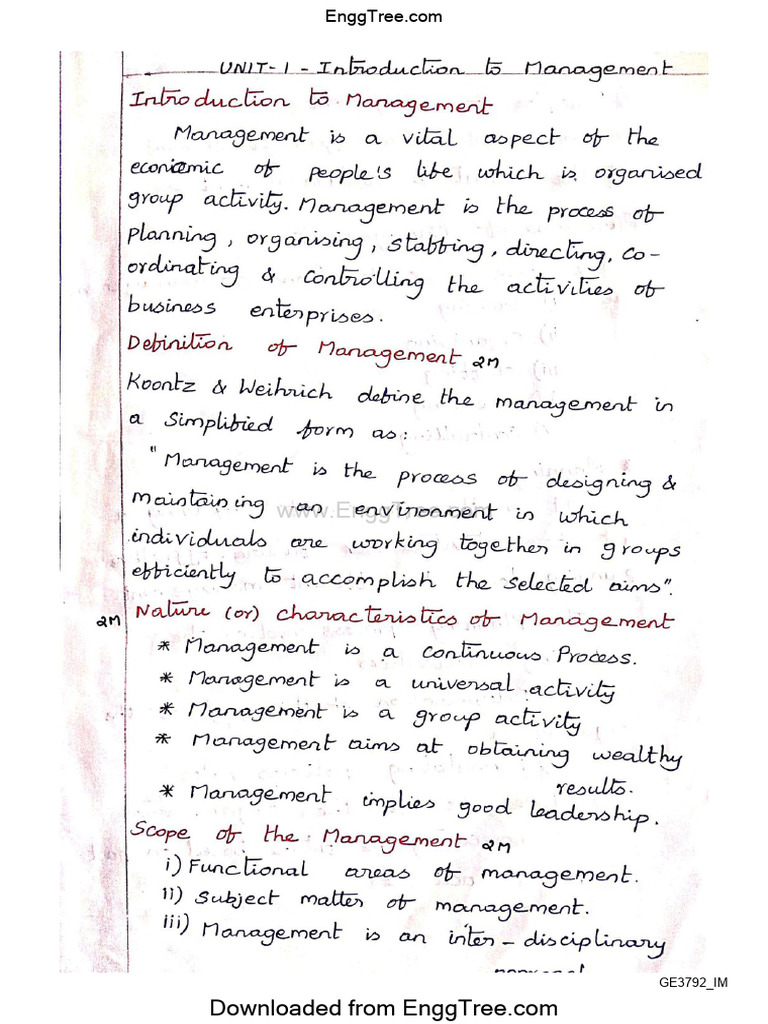 EnggTree.com
UNIT-1 - Introduction to Management
Introduction to Management
Management is a vital aspect of the
economic of people's life which is organised
group activity. Management is the process of
planning, organising, staffing, directing, co-
ordinating & controlling the activities of
business enterprises.
Definition of Management 2M
Koontz & Weihrich define the management in
a simplified form as:
"Management is the process of designing &
maintaining an environment in which
www.EnggTree.com
individuals are working together in groups
efficiently to accomplish the selected aims".
2M Nature (or) characteristics of Management
* Management is a continuous Process.
* Management is a universal activity
* Management is a group activity
* Management aims at obtaining wealthy
results.
* Management implies good leadership.
Scope of the Management 2M
i) Functional areas of management.
ii) Subject matter of management.
iii) Management is an inter-disciplinary
GE3792_IM
Downloaded from EnggTree.com